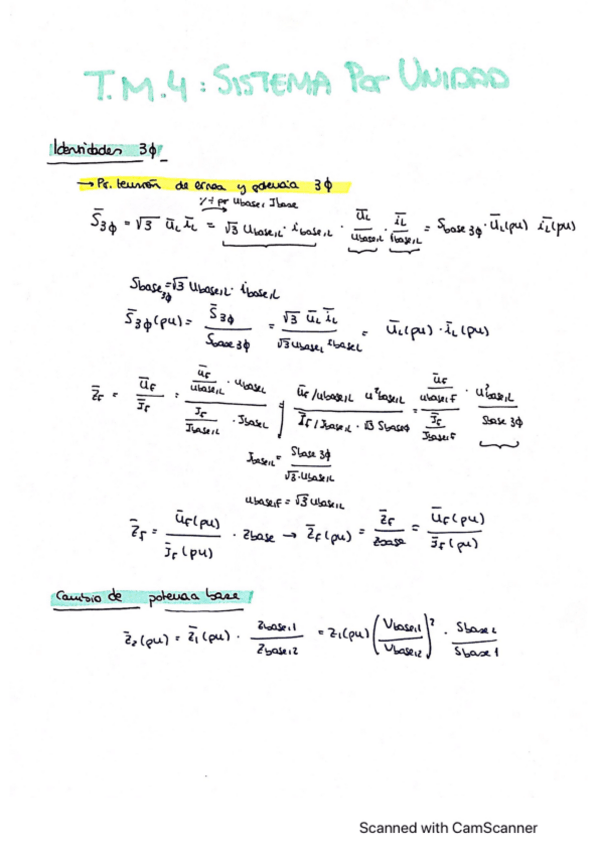 T.M.4: SISTEMA POR UNIDAD
Identidades 3ϕ
→ Pr. tensión de línea y potencia 3ϕ
x/÷ pr Ubase, Ibase
S̄3ϕ = √3 ūL īL = √3 Ubase,L · ibase,L · ūL/Ubase,L · īL/Ibase,L = Sbase3ϕ · ūL(pu) īL(pu)
Sbase3ϕ = √3 Ubase,L · ibase,L
S̄3ϕ(pu) = S̄3ϕ / Sbase3ϕ = √3 ūL īL / √3 Ubase,L ibase,L = ūL(pu) · īL(pu)
Z̄f = ūf / Īf = (ūf/Ubase,L · UbaseL) / (If/Ibase,L · IbaseL) | (ūf/Ubase,L U²base,L) / (Īf/Ibase,L · √3 Sbaseϕ) = (ūf/Ubase,f) / (Īf/Ibase,f) · U²base,L / Sbase3ϕ
Ibase,L = Sbase3ϕ / √3·Ubase,L
Ubase,f = √3 Ubase,L
Z̄f = ūf(pu) / Īf(pu) · Zbase → Z̄f(pu) = Z̄f / Zbase = ūf(pu) / Īf(pu)
Cambio de potencia base
Z̄2(pu) = Z̄1(pu) · Zbase,1 / Zbase,2 = Z1(pu) (Vbase,1 / Vbase,2)² · Sbase2 / Sbase1
Scanned with CamScanner